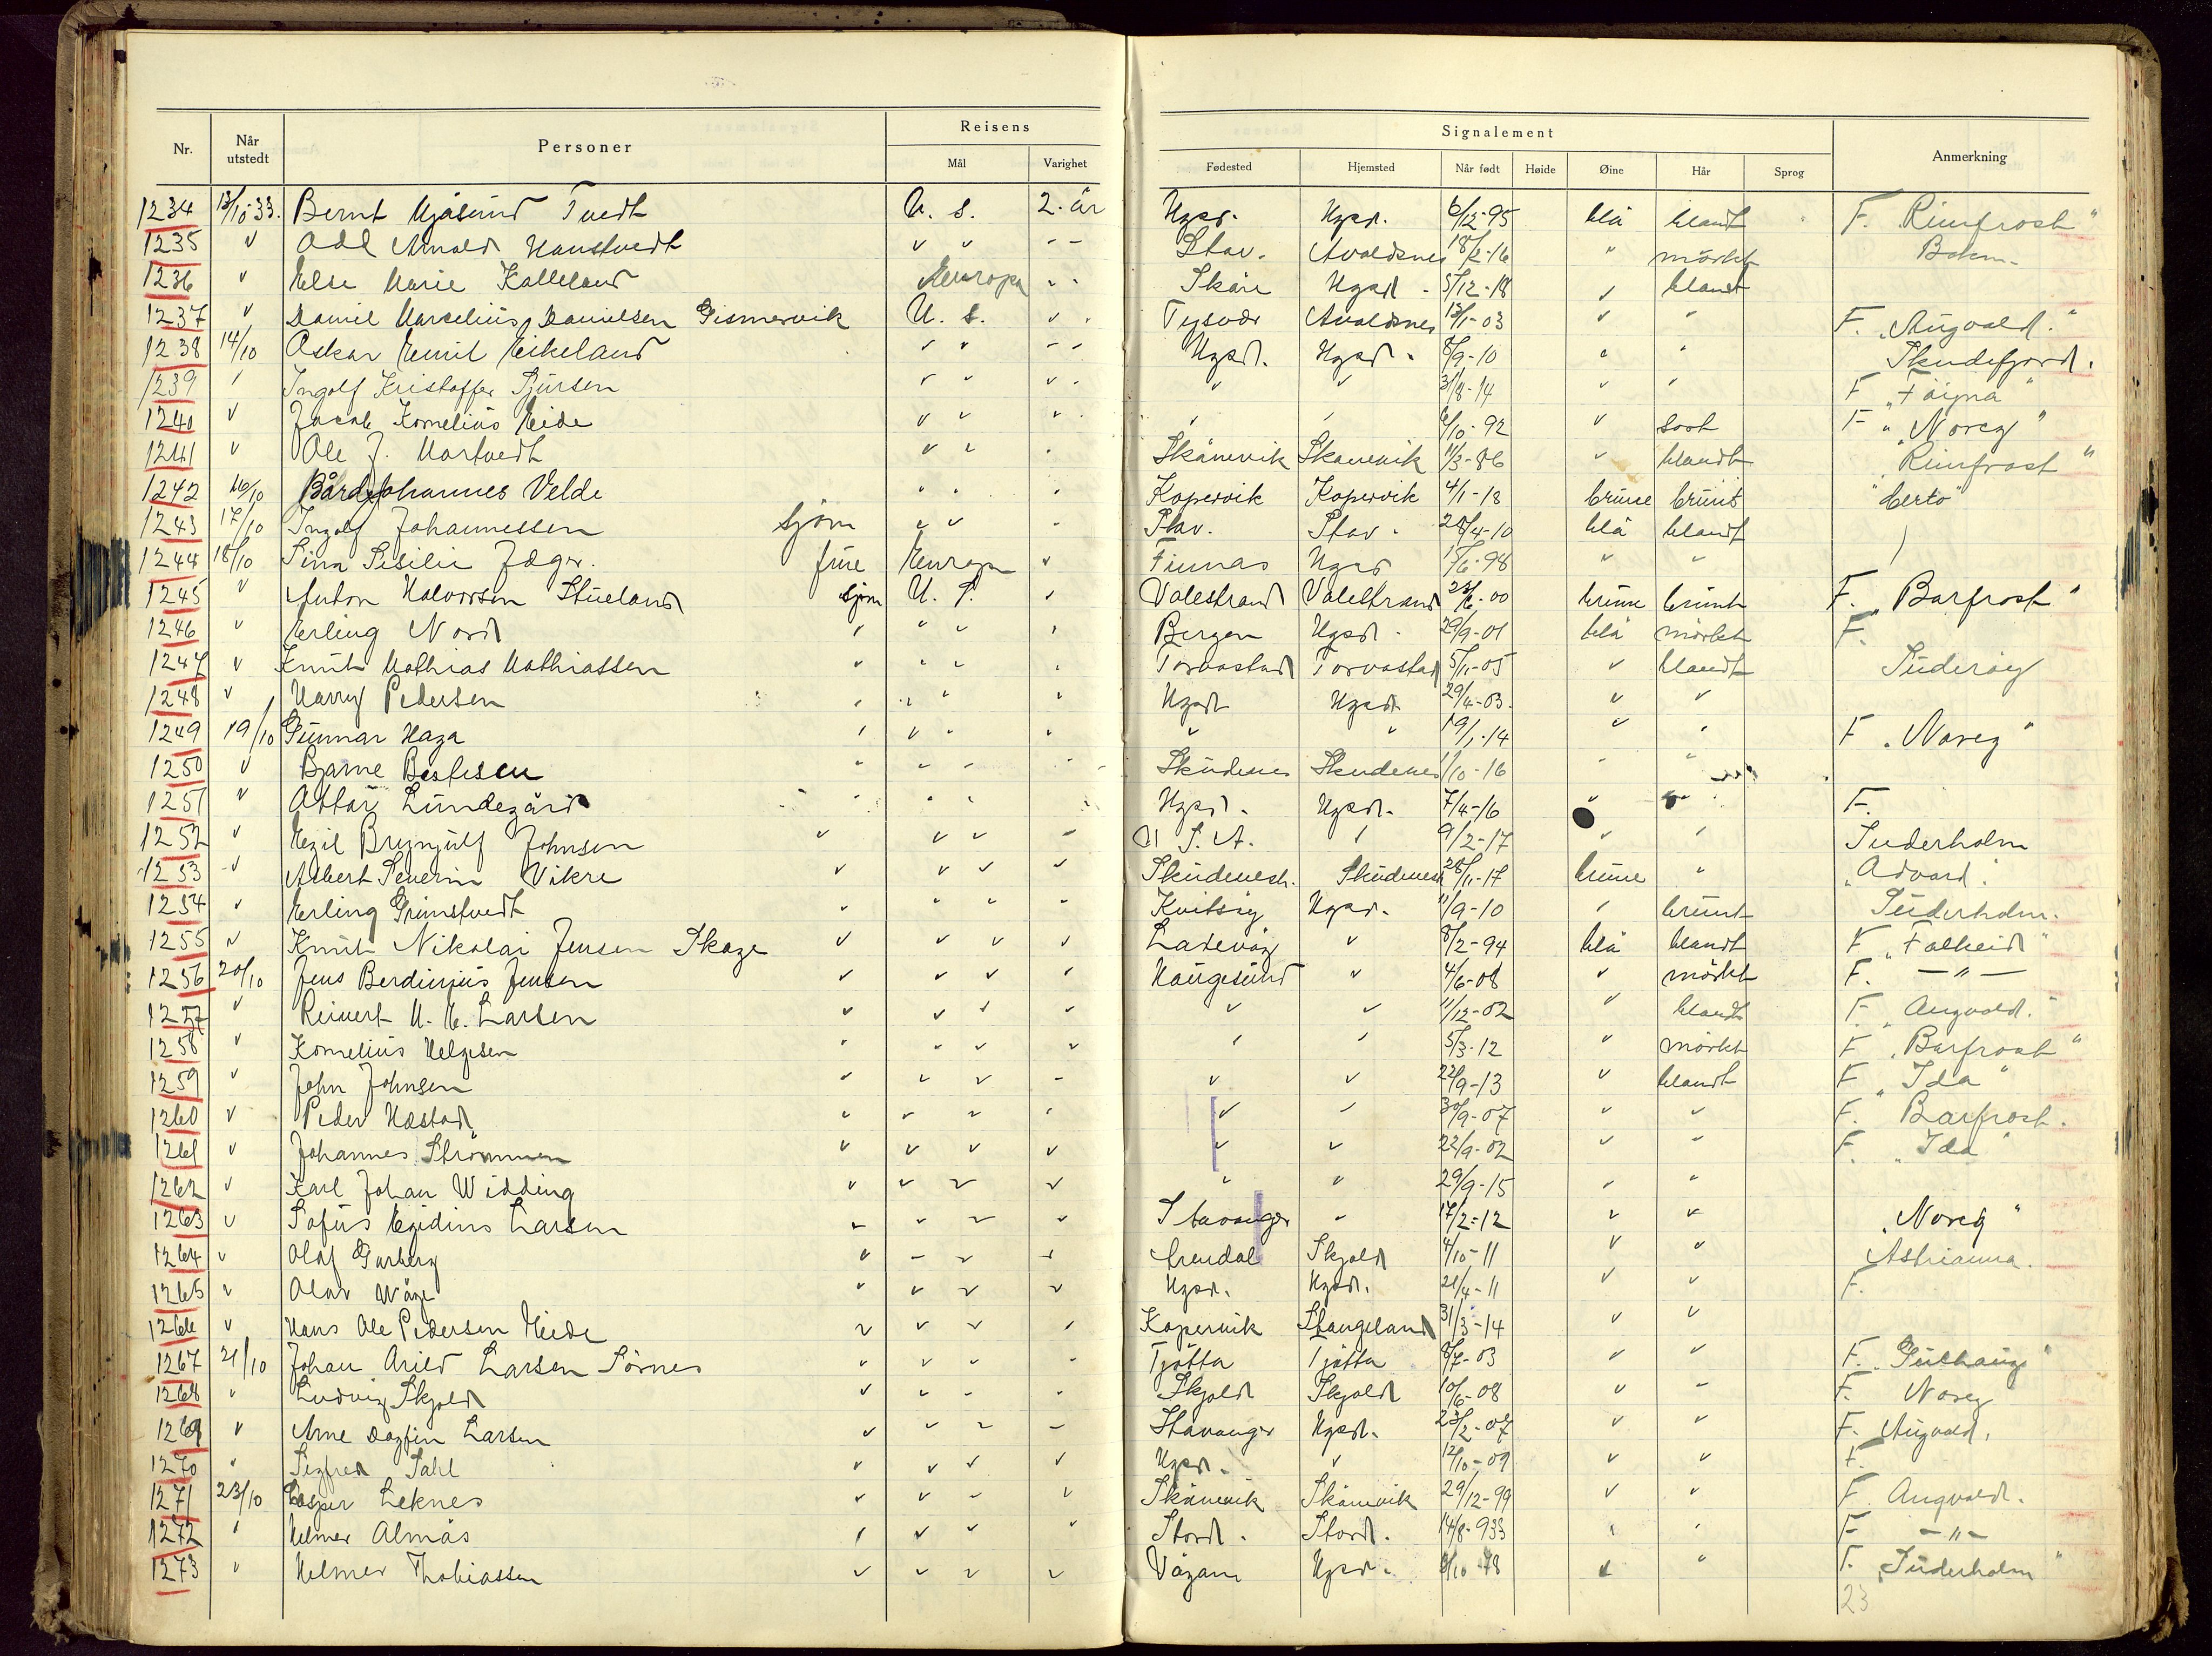 Nr. Når utstedt Personer Reisens Mål Varighet Signalement Fødested Hjemsted Når født Høide Øine Hår Sprog Anmerkning
1234 13/10-33. Bernt Mjåsund Tvedt U. S. 2. år Hgsd. Hgsd. 6/12-95 blå blandt F. Rimfrost"
1235 " Odd Arnold Hanstvedt " " " Stav. Avaldsnes 18/2-16 " mörkt
1236 " Else Marie Kalleland Europa " " Skåre Hgsd. 5/12-18 " blandt
1237 " Daniel Marselius Danielsen Gismervik U. S. " " Tysvær Avaldsnes 13/1-03 " " F. "Augvald."
1238 14/10 Oskar Emil Eikeland " " " Hgsd. Hgsd. 8/9-10 " " Skudefjord.
1239 " Ingolf Kristoffer Sjursen " " " " " 31/8-14 " " F "Föyna"
1240 " Jacob Kornelius Eide " " " " " 6/10-92 " sort F "Noreg"
1241 " Ole J. Martvedt " " " Skånevik Skånevik 11/3-86 " blandt Rimfrost"
1242 16/10 Bård Johannes Velde " " " Kopervik Kopervik 4/1-18 brune brunt "Certo"
1243 17/10 Ingolf Johannessen sjöm " " " Stav. Stav. 28/4-10 blå blandt
1244 18/10 Sina Sesilie Jæger. frue Europa " Finnås Hgsd 15/6-98 " "
1245 " Anton Halvorsen Stueland sjöm U. S. " Valestrand Valestrand 23/6-00 brune brunt F. "Barfrost"
1246 " Erling Nord " " " " Bergen Hgsd. 29/9-01 blå mörkt F.
1247 " Knut Mathias Mathiassen " " " " Torvastad Torvastad 5/11-05 " blandt Suderöy
1248 " Harry Pedersen " " " " Hgsd Hgsd 29/4-03. " "
1249 19/10 Gunnar Haga " " " " " " 19/1-14 " " F "Noreg"
1250 " Bjarne Bestesen " " " " Skudenes Skudenes 1/10-16 " "
1251 " Ottar Lundegård " " " " Hgsd. Hgsd. 7/4-16 " " F.
1252 " Egil Brynjulf Johnsen " " " " U S. A. " 9/2-17 " " Suderholm
1253 " Albert Severin Vikre " " " " Skudenesh. Skudenesh 28/11-17 brune " "Advard".
1254 " Erling Grimstvedt " " " " Kvitsöy Hgsd. 11/9-10 " brunt Suderholm.
1255 " Knut Nikolai Jensen Skage " " " " Ladevåg " 8/2-94 blå blandt F "Falkeid"
1256 20/10 Jens Berdinius Jensen " " " " Haugesund " 4/6-08 " mörkt F. — " —
1257 " Reinert M. E. Larsen " " " " " " 11/12-02 " blandt F. "Augvald."
1258 " Kornelius Helgesen " " " " " " 5/3-12 " mörkt F "Barfrost"
1259 " John Johnsen " " " " " " 22/9-13 " blandt F "Ida"
1260 " Peder Hæstad " " " " " " 30/9-07 " " F. "Barfrost.
1261 " Johannes Strömmen " " " " " " 22/9-02 " " F. "Ida"
1262 " Karl Johan Widding " " " " " " 29/9-15 " "
1263 " Sofus Egidius Larsen " " " " Stavanger " 17/2-12 " " "Noreg"
1264 " Olaf Garberg " " " " Arendal Skjold 4/10-11 " "
1265 " Olav Våge " " " " Hgsd. Hgsd. 21/4-11 " " F.
1266 " Hans Ole Pedersen Eide " " " " Kopervik Stangeland 31/3-14 " "
1267 21/10 Johan Arild Larsen Sörnes " " " " Tjötta Tjötta 8/7-03 " " F. "Gulhaug"
1268 " Ludvig Skjold " " " " Skjold Skjold 10/6-08 " " F. Noreg
1269 " Arne Dagfin Larsen " " " " Stavanger Hgsd. 23/2-07 " " F. Augvald.
1270 " Sigfred Sahl " " " " Hgsd. " 12/10-09 " " F.
1271 23/10 Casper Leknes " " " " Skånevik Skånevik 29/12-99 " " F. Augvald.
1272 " Helmer Almås " " " " Stord. Stord. 14/8-933 " " F — " —
1273 " Helmer Thobiassen " " " " Vågan Hgsd. 6/10-78 " " F. "Suderholm"
23